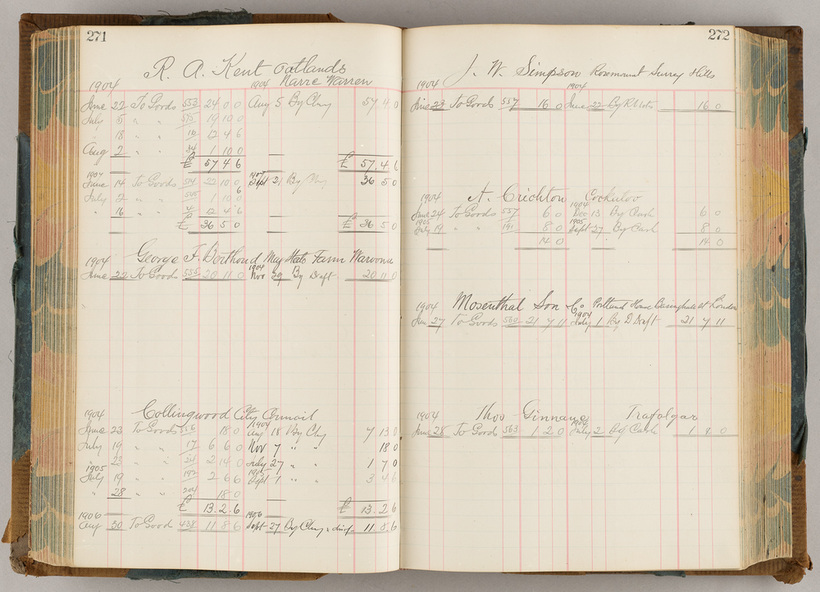 271
R. A. Kent Oatlands
Narre Warren
1904 1904
June 22 To Goods 533 24 0 0 Aug 5 By Chq 57 4 0
July 5 " " 19 10 0
" 18 " " 19 12 4 6
Aug 2 " " 1 10 0
£ 57 4 6 £ 57 4 6
1907 1907
June 14 To Goods 22 10 0 Sept 2 By 36 5 0
July 2 " " 1 10 0
" 16 " " 12 4 6
£ 36 5 0 £ 36 5 0
1904 George F. Berthoud May State Farm Waroona
June 22 To Goods 535 20 11 0 1904 Nov 29 By Draft 20 11 0
1904 Collingwood City Council
1904
June 23 To Goods 536 18 0 Aug 18 By Chq 7 13 0
July 19 " " 17 6 6 0 Nov 7 " " 18 0
" 22 " " 24 2 14 0 July 27 " " 1 7 0
1905 1905
July 19 " " 2 6 6 Sept 7 " " 3 4 6
" 28 " " 18 0
£ 13.2.6 £ 13.2.6
1906 1906
Aug 30 To Goods 438 11 8 6 Sept 27 By Chq & disct 11 8 6
272
J. W. Simpson Rosemount Surrey Hills
1904 1904
June 23 To Goods 557 16 0 June 22 By 16 0
1904 A. Crichton Cockatoo
1904
June 24 To Goods 557 6 0 Dec 13 By Cash 6 0
1905 1905
July 19 " " 191 8 0 Sept 27 By Cash 8 0
14 0 14 0
1904 Mosenthal Son & Co Portland House Basinghall St London
1904
Jun 27 To Goods 560 21 7 11 July 1 By D Draft 21 7 11
1904 Thos Ginnane Trafalgar
June 28 To Goods 563 1 2 0 July 2 By Cash 1 2 0